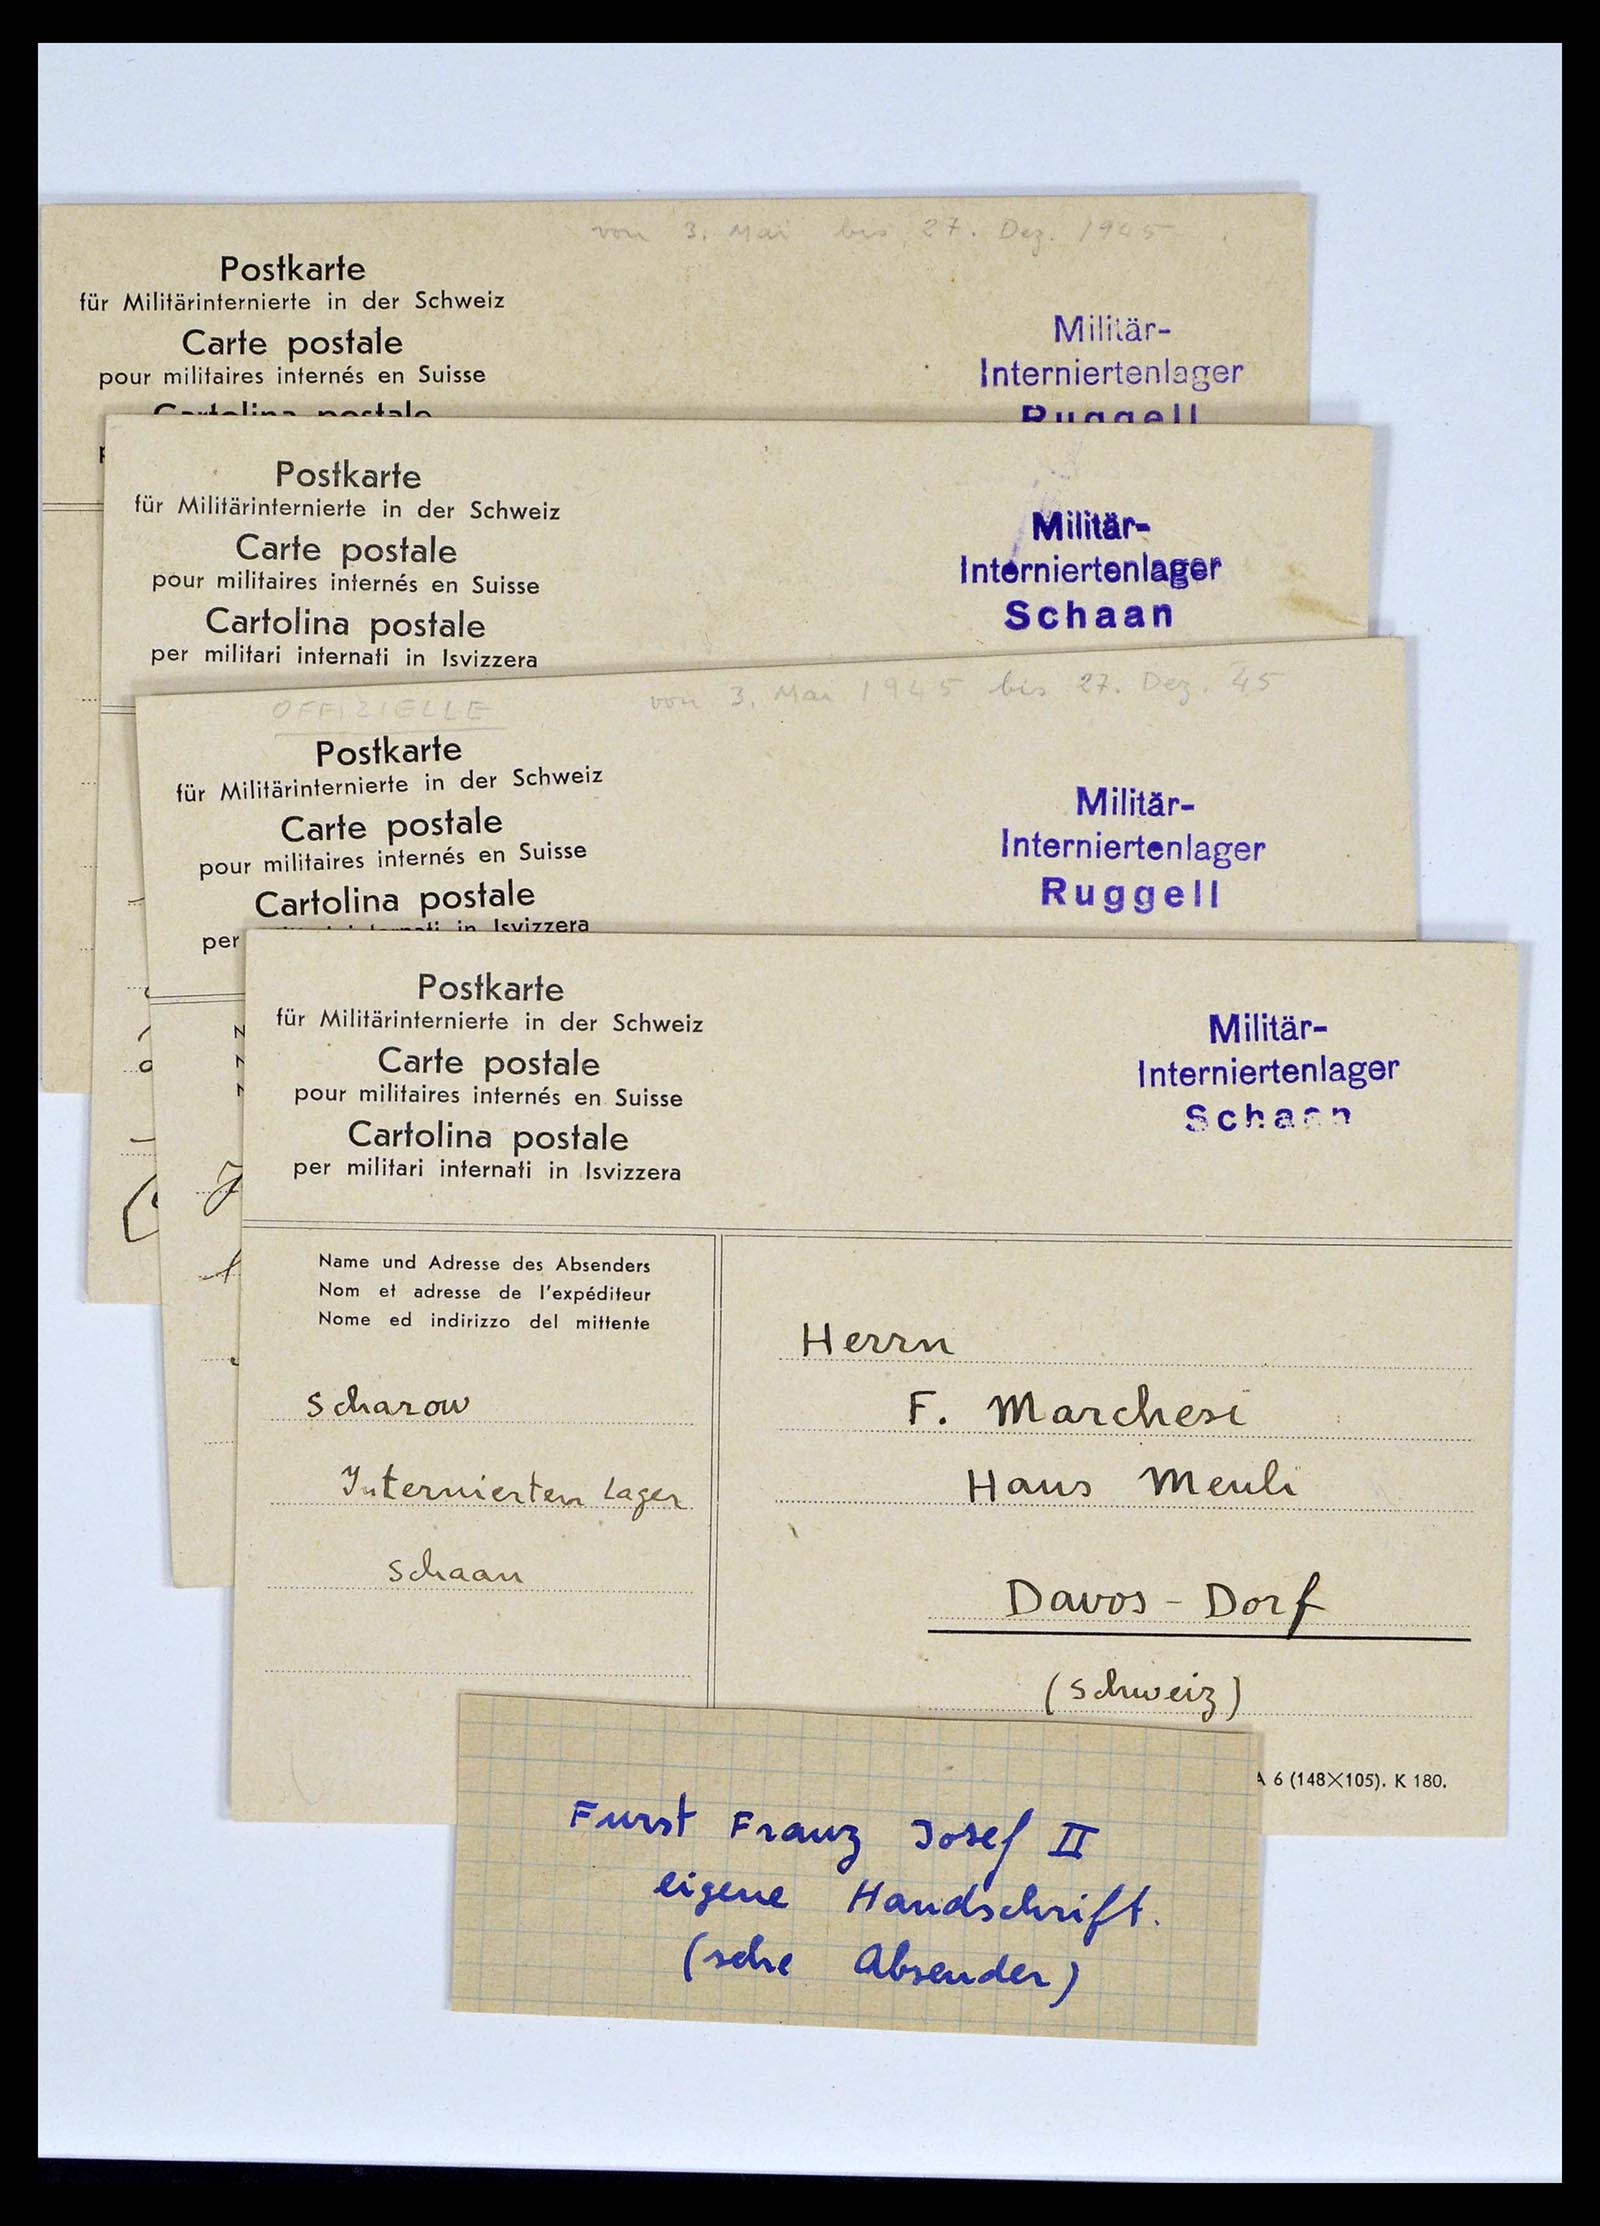 von 3. Mai bis 27. Dez. 1945
Postkarte
für Militärinternierte in der Schweiz
Carte postale
pour militaires internés en Suisse
Cartolina postale
Militär-
Interniertenlager
Ruggell
Postkarte
für Militärinternierte in der Schweiz
Carte postale
pour militaires internés en Suisse
Cartolina postale
per militari internati in Isvizzera
Militär-
Interniertenlager
Schaan
OFFIZIELLE
von 3. Mai 1945 bis 27. Dez. 45
Postkarte
für Militärinternierte in der Schweiz
Carte postale
pour militaires internés en Suisse
Cartolina postale
per militari internati in Isvizzera
Militär-
Interniertenlager
Ruggell
Postkarte
für Militärinternierte in der Schweiz
Carte postale
pour militaires internés en Suisse
Cartolina postale
per militari internati in Isvizzera
Militär-
Interniertenlager
Schaan
Name und Adresse des Absenders
Nom et adresse de l'expéditeur
Nome ed indirizzo del mittente
Scharow
Internierten Lager
Schaan
Herrn
F. Marchesi
Haus Meuli
Davos - Dorf
(Schweiz)
A 6 (148×105). K 180.
Furst Franz Josef II
eigene Handschrift.
(sehe Absender)